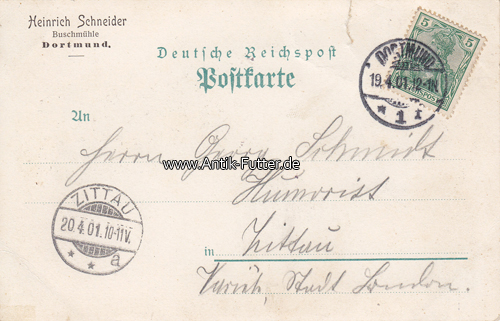 Heinrich Schneider
Buschmühle
Dortmund.
Deutsche Reichspost
Postkarte
5 5
DORTMUND
19.4.01.12-1N.
* 1 r
An
Herrn Georg Schmidt
www.Antik-Futter.de
Humorist
ZITTAU
20.4.01.10-11V.
* * a
in Zittau
Stadt London.